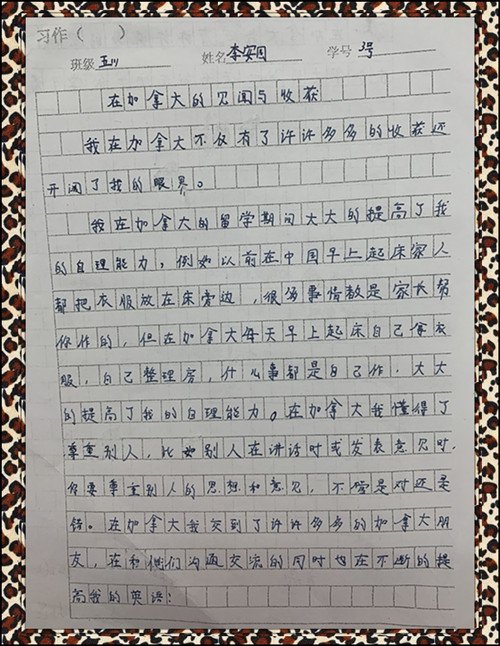 习作（ ）
班级 五川 姓名 李安同 学号 3号
在加拿大的见闻与收获
我在加拿大不仅有了许许多多的收获还
开阔了我的眼界。
我在加拿大的留学期间大大的提高了我
的自理能力，例如以前在中国早上起床家人
都把衣服放在床旁边，很多事情都是家长帮
你作的，但在加拿大每天早上起床自己拿衣
服，自己整理房，什么事都是自己作，大大
的提高了我的自理能力。在加拿大我懂得了
尊重别人，比如别人在讲话时或发表意见时，
你要尊重别人的思想和意见，不管是对还是
错。在加拿大我交到了许许多多的加拿大朋
友，在和他们沟通交流的同时也在不断的提
高我的英语；